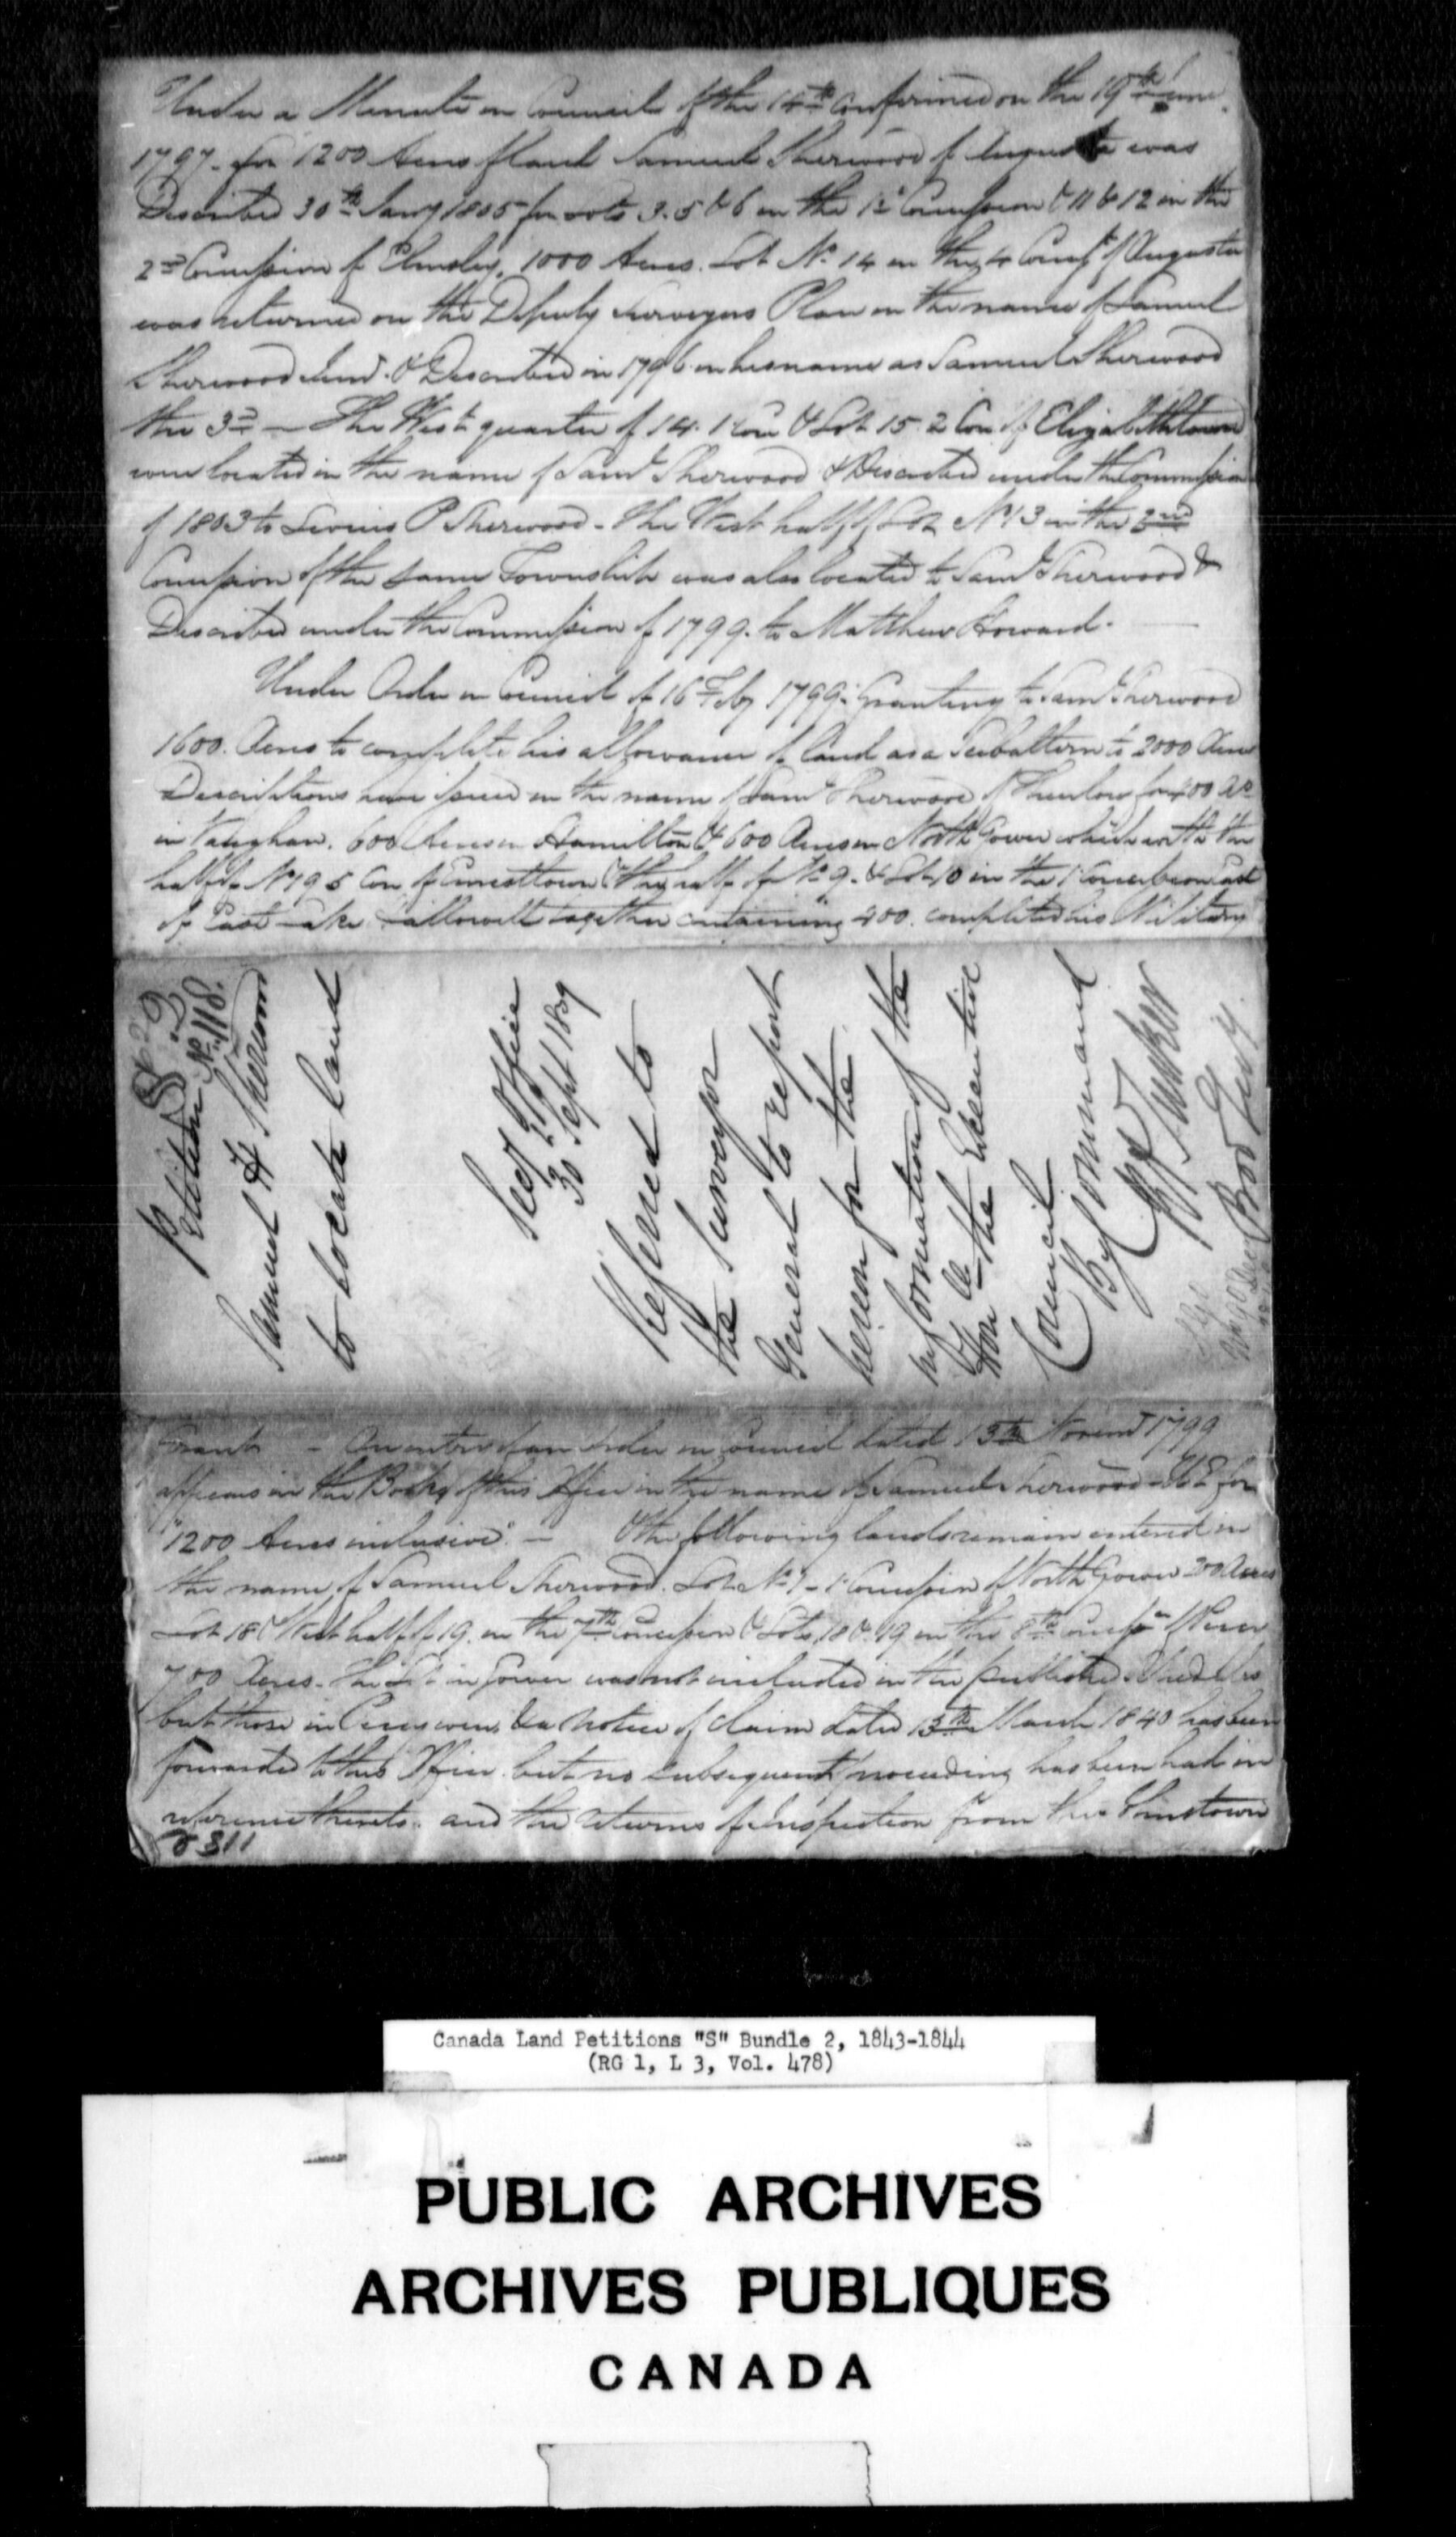 Under a Minute in Council of the 14th Confirmed on the 19th June
1797 for 1200 Acres of Land Samuel Sherwood of Augusta was
Described 30th Jany 1805 for Lots 3. 5 & 6 in the 1st Concession & 11 & 12 in the
2nd Concession of Elmsley, 1000 Acres. Lot No 14 in the Concn of Augusta
was returned on the Deputy Surveyors Plan in the name of Samuel
Sherwood Senr. & Described in 1796 in his name as Samuel Sherwood
the 3rd — The West quarter of 14. 1 Con & Lot 15 2 Con. of Elizabethtown
were located in the name of Saml Sherwood & Described under the Commission
of 1803 to Levius P Sherwood - The West half of Lot No 13 in the 2nd
Concession of the same Township was also located to Saml Sherwood &
Described under the Commission of 1799. to Matthew Howard.
Under Order in Council of 16 Feby 1799. Granting to Saml Sherwood
1600. Acres to complete his allowance of Land as a Subaltern to 2000 Acres
Descriptions have issued in the name of Saml Sherwood of Thurlow for 400 Ac
in Vaughan. 600 Acres in Hamilton & 600 Acres in North Gower which with the
half of No 19 5 Con of Ernesttown & the half of No 9. & Lot 10 in the 1 Concession East
of East Lake Hallowell together containing 400. completed his Military
Petition No 118.
Samuel H Sherwood
to locate land
Secy Office
30 Sept 1839
Referred to
the Surveyor
General to report
hereon for the
information of the
Honble the Executive
Council
By Command
Tucker
Prov Secy
Grant — An entry of an Order in Council dated 13th Novemr 1799
appears in the Books of this Office in the name of Samuel Sherwood U E for
"1200 Acres inclusive" — & the following lands remain entered in
the name of Samuel Sherwood. Lot No 7 - 1 Concession of North Gower 200 Acres
Lot 18 & West half of 19. in the 7th Concession & Lots 18 & 19 in the 8th Concn
700 Acres. The Lot in Gower was not included in the published Schedules
but those in were, & a Notice of Claim dated 13th March 1840 has been
forwarded to this Office but no subsequent proceeding has been had in
reference thereto. and the returns of Inspection from the Johnstown
8311
Canada Land Petitions "S" Bundle 2, 1843-1844
(RG 1, L 3, Vol. 478)
PUBLIC ARCHIVES
ARCHIVES PUBLIQUES
CANADA